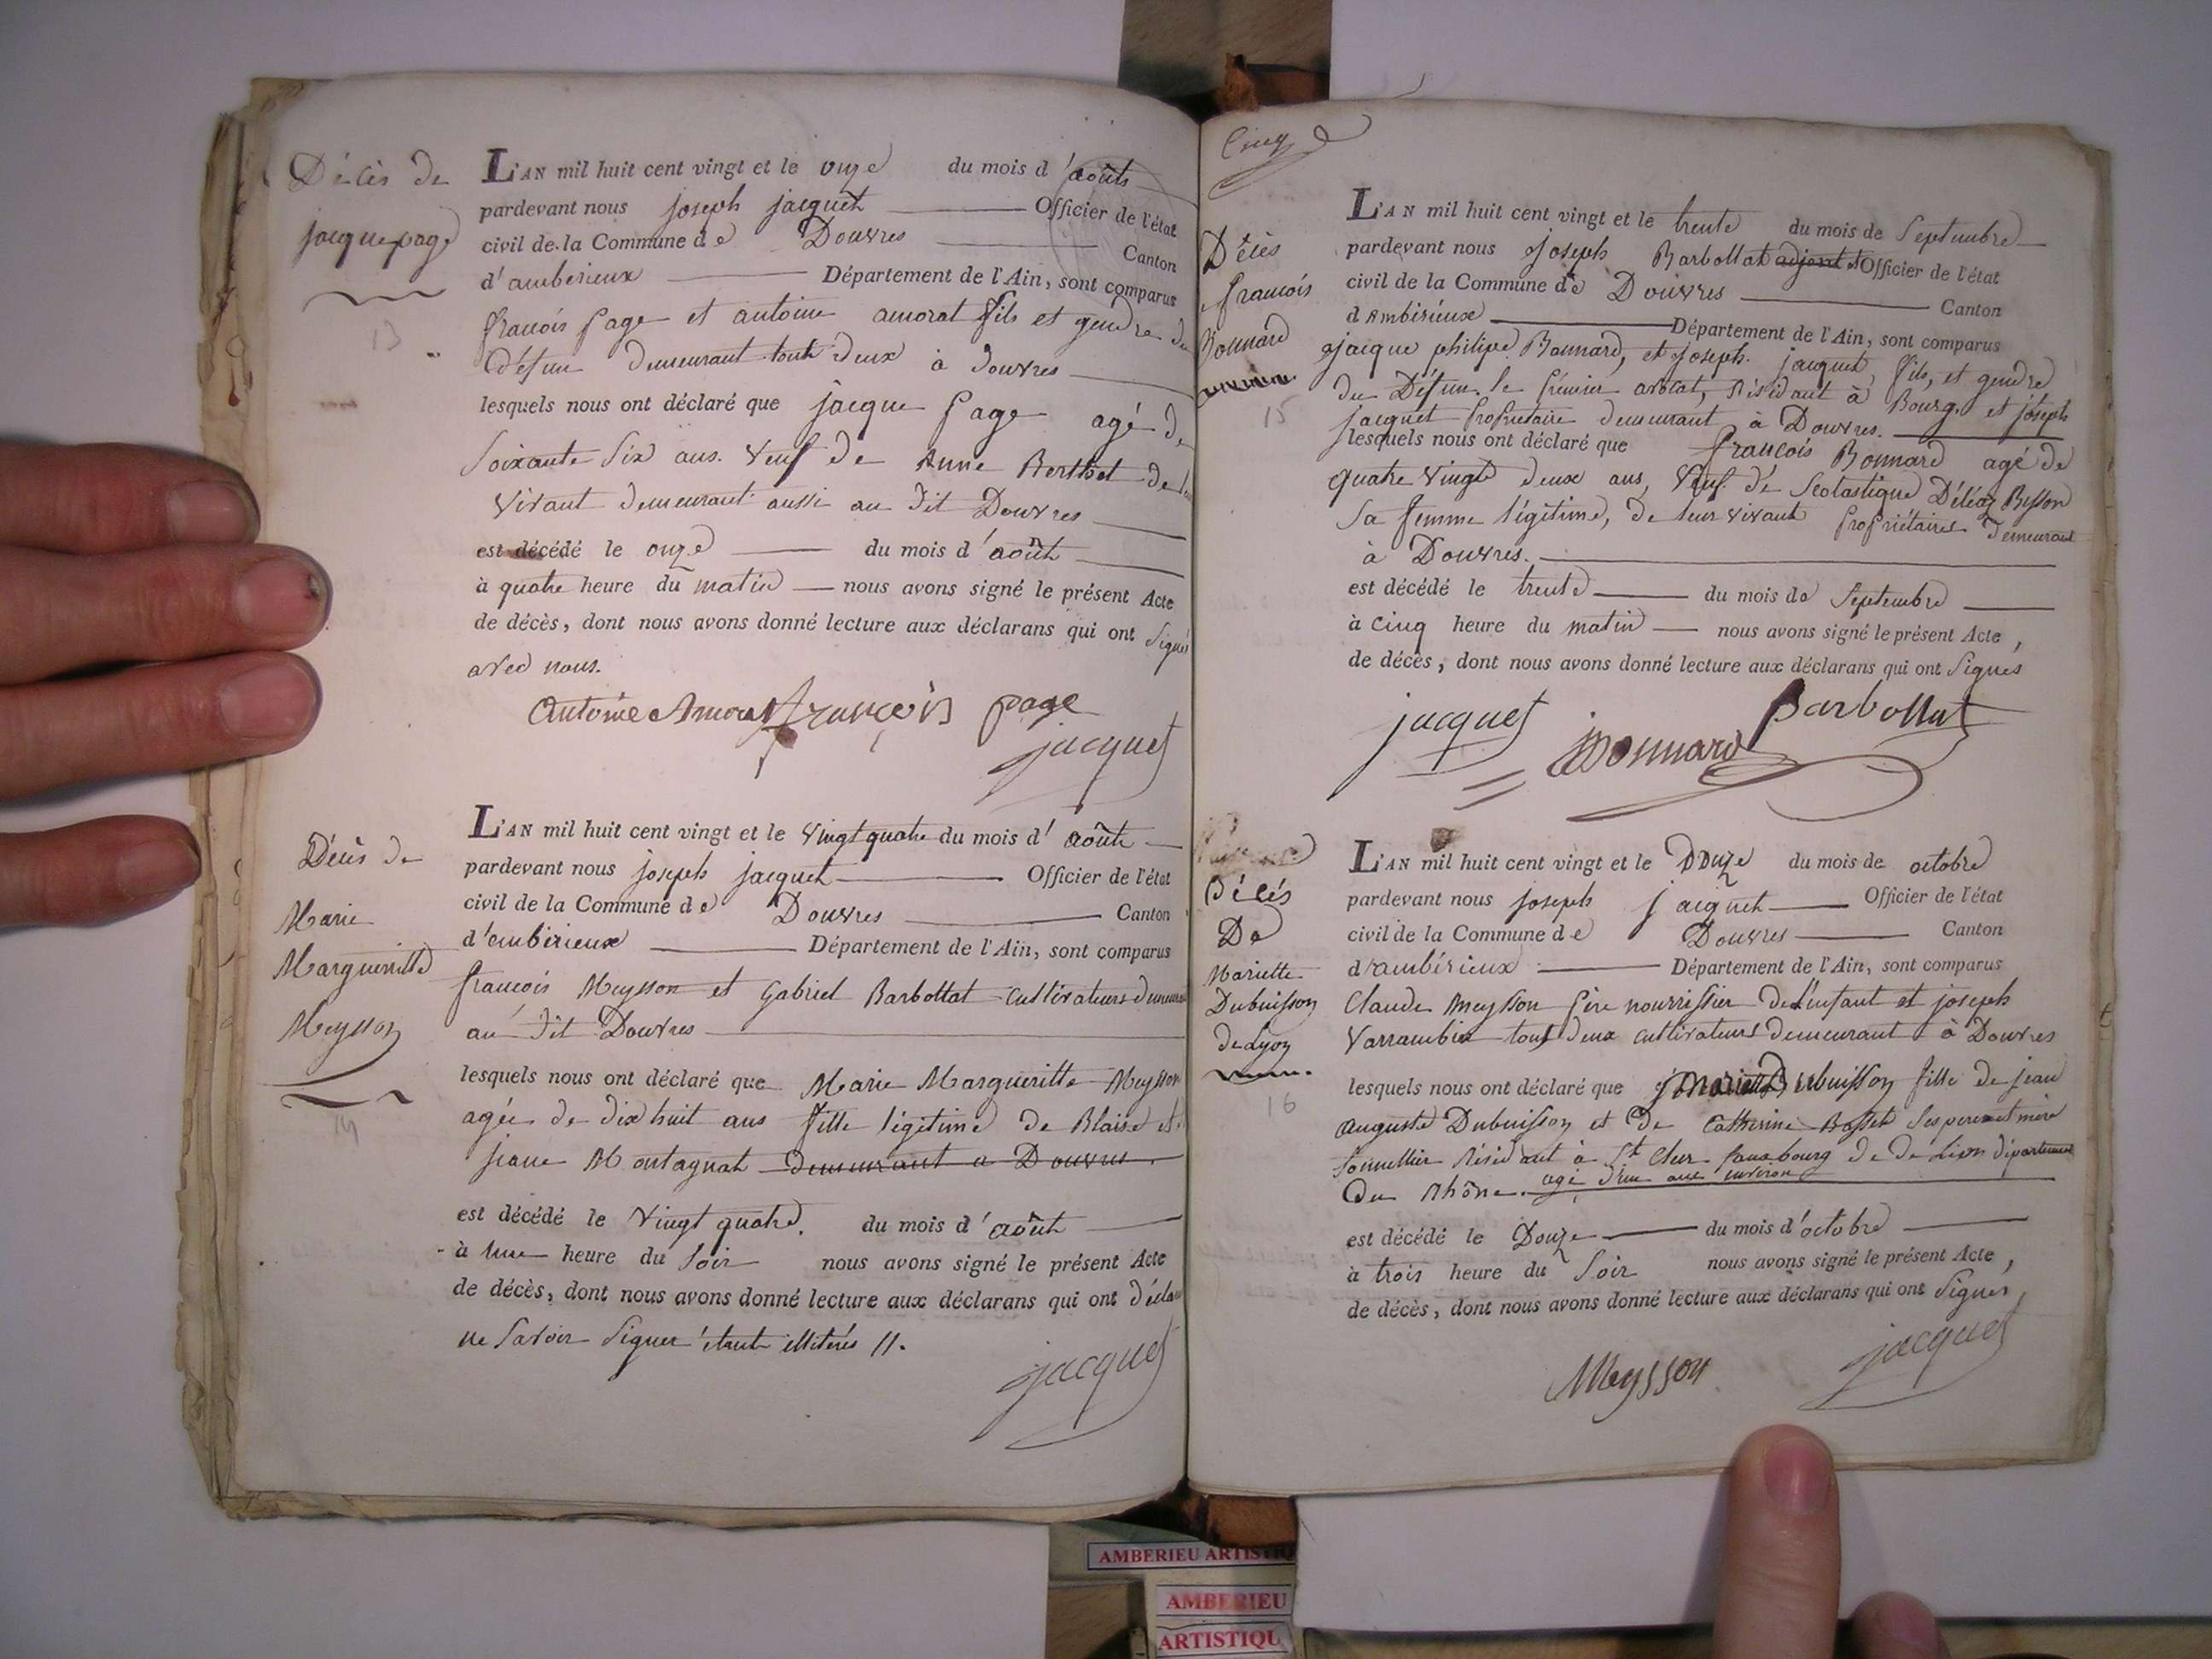 Décès de
jacque page
13
L'AN mil huit cent vingt et le onze du mois d'aoûts
pardevant nous joseph jacquet Officier de l'état
civil de la Commune de Douvres Canton
d'amberieux Département de l'Ain, sont comparus
francois page et antoine amorat fils et gendre du
défun demeurant tout deux à douvres
lesquels nous ont déclaré que jacque page agé de
soixante six ans. veuf de Anne Berthet de leur
vivant demeurant aussi au dit Douvres
est décédé le onze du mois d'août
à quatre heure du matin nous avons signé le présent Acte
de décès, dont nous avons donné lecture aux déclarans qui ont signés
avec nous.
antoine Amorat françois page
jacquet
Décès de
Marie
Margueritte
Meysson
14
L'AN mil huit cent vingt et le vingt quatre du mois d'août
pardevant nous joseph jacquet Officier de l'état
civil de la Commune de Douvres Canton
d'ambérieux Département de l'Ain, sont comparus
francois Meysson et Gabriel Barbollat cultivateurs demeurant
au dit Douvres
lesquels nous ont déclaré que Marie Margueritte Meysson
agée de dix huit ans fille légitime de Blaise et
jeane Montagnat demeurant a Douvres.
est décédé le vingt quatre. du mois d'août
à une heure du soir nous avons signé le présent Acte
de décès, dont nous avons donné lecture aux déclarans qui ont décla
ne savoir signer étant illitérés //.
jacquet
Cinq
Décès
francois
Bonnard
15
L'AN mil huit cent vingt et le trente du mois de Septembre
pardevant nous joseph Barbollat adjoint Officier de l'état
civil de la Commune de Douvres Canton
d'Ambérieux Département de l'Ain, sont comparus
jacque philipe Bonnard, et joseph jacquet fils, et gendre
du Défun. le premier avocat, résidant à Bourg. et joseph
jacquet propriétaire demeurant à Douvres.
lesquels nous ont déclaré que francois Bonnard agé de
quatre vingt deux ans, veuf de Scolastique Déléaz Bysson
sa femme légitime, de leur vivant propriétaires demeurant
à Douvres.
est décédé le trente du mois de Septembre
à cinq heure du matin nous avons signé le présent Acte,
de décès, dont nous avons donné lecture aux déclarans qui ont signés
Barbollat
jacquet
Bonnard
Décès
De
Mariette
Dubuisson
de Lyon
16
L'AN mil huit cent vingt et le Douze du mois de octobre
pardevant nous joseph jacquet Officier de l'état
civil de la Commune de Douvres Canton
d'ambérieux Département de l'Ain, sont comparus
Claude Meysson père nourrissier de l'enfant et joseph
Varrambie tous deux cultivateurs demeurant à Douvres
lesquels nous ont déclaré que Mariette Dubuisson fille de jean
auguste Dubuisson et de Catherine Bosset ses pere et mère
résidant à St Cler fauxbourg de de Lion département
Du Rhône. agé d'un ans environ
est décédé le Douze du mois d'octobre
à trois heure du soir nous avons signé le présent Acte,
de décès, dont nous avons donné lecture aux déclarans qui ont signés,
jacquet
Meysson
AMBERIEU ARTISTIQ
AMBERIEU
ARTISTIQU